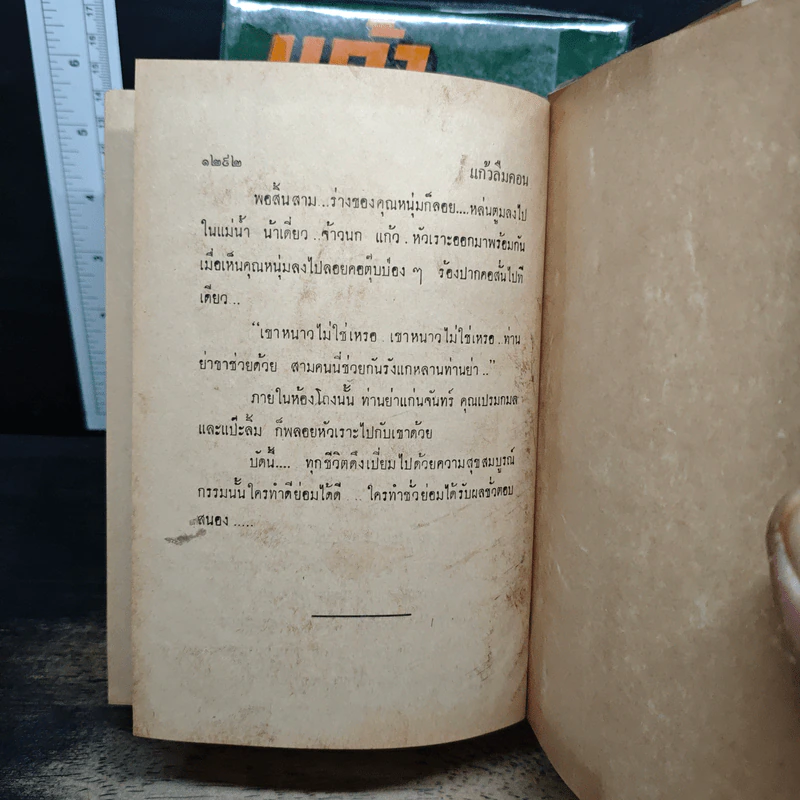 แก้ว
๑๒๕๒
แก้วลืมคอน
พอสิ้นสาม...ร่างของคุณหนุ่มก็ลอย....หล่นตูมลงไป
ในแม่น้ำ น้าเดี่ยว..จ้าวนก แก้ว.หัวเราะออกมาพร้อมกัน
เมื่อเห็นคุณหนุ่มลงไปลอยคอตุ๊บป่อง ๆ ร้องปากคอสั่นไปที
เดียว..
"เขาหนาวไม่ใช่เหรอ.เขาหนาวไม่ใช่เหรอ.ท่าน
ย่าขาช่วยด้วย สามคนนี่ช่วยกันรังแกหลานท่านย่า.."
ภายในห้องโถงนั้น ท่านย่าแก่นจันทร์ คุณเปรมกมล
และแป๊ะลิ้ม ก็พลอยหัวเราะไปกับเขาด้วย
บัดนี้.... ทุกชีวิตดึงเปี่ยมไปด้วยความสุขสมบูรณ์
กรรมนั้นใครทำดีย่อมได้ดี ... ใครทำชั่วย่อมได้รับผลชั่วตอบ
สนอง.....